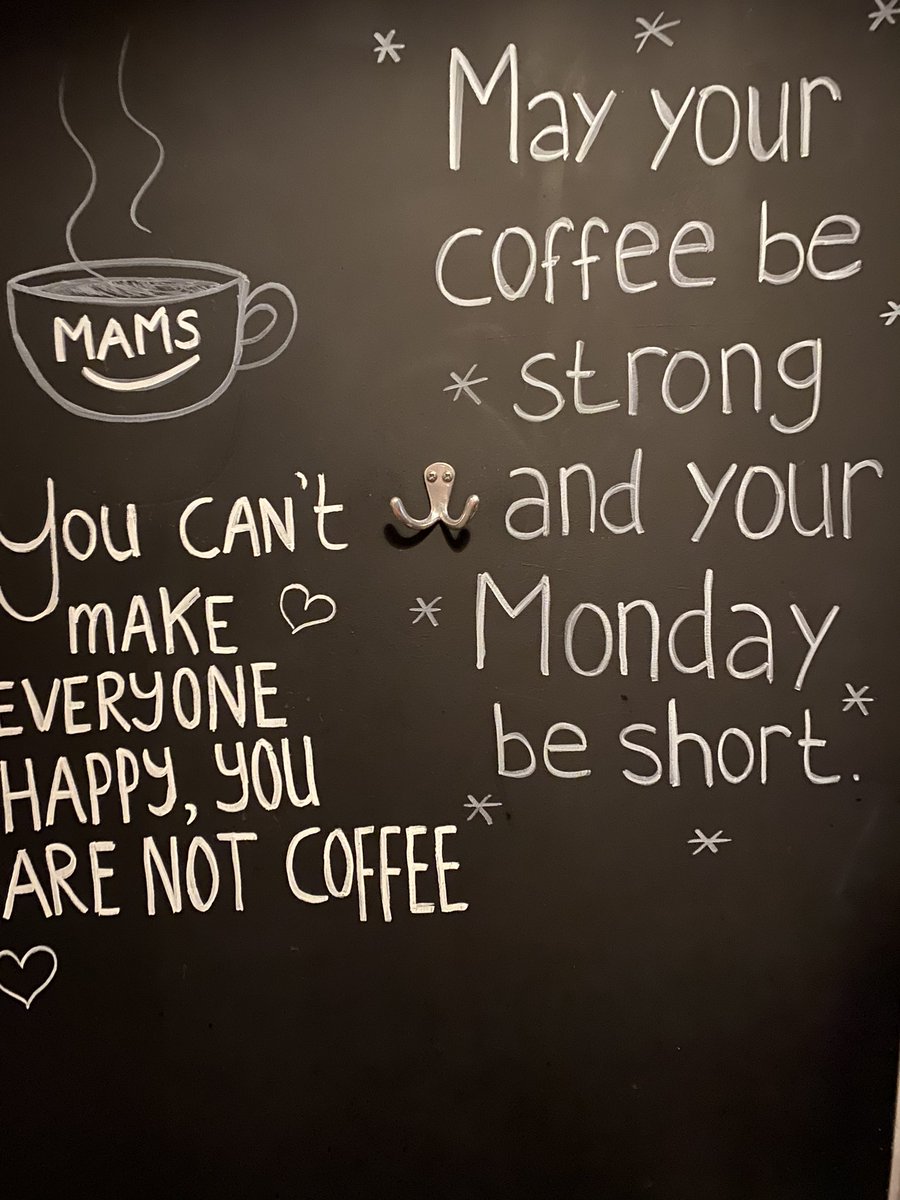 MAMS
You CAN't
mAKE
EVERYONE
HAPPY, YOU
ARE NOT COFFEE
May your
coffee be
strong
and your
Monday
be short.